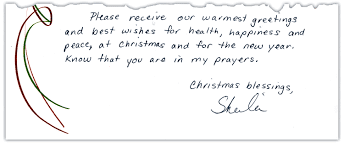 Please receive our warmest greetings
and best wishes for health, happiness and
peace, at Christmas and for the new year.
Know that you are in my prayers.
Christmas blessings,